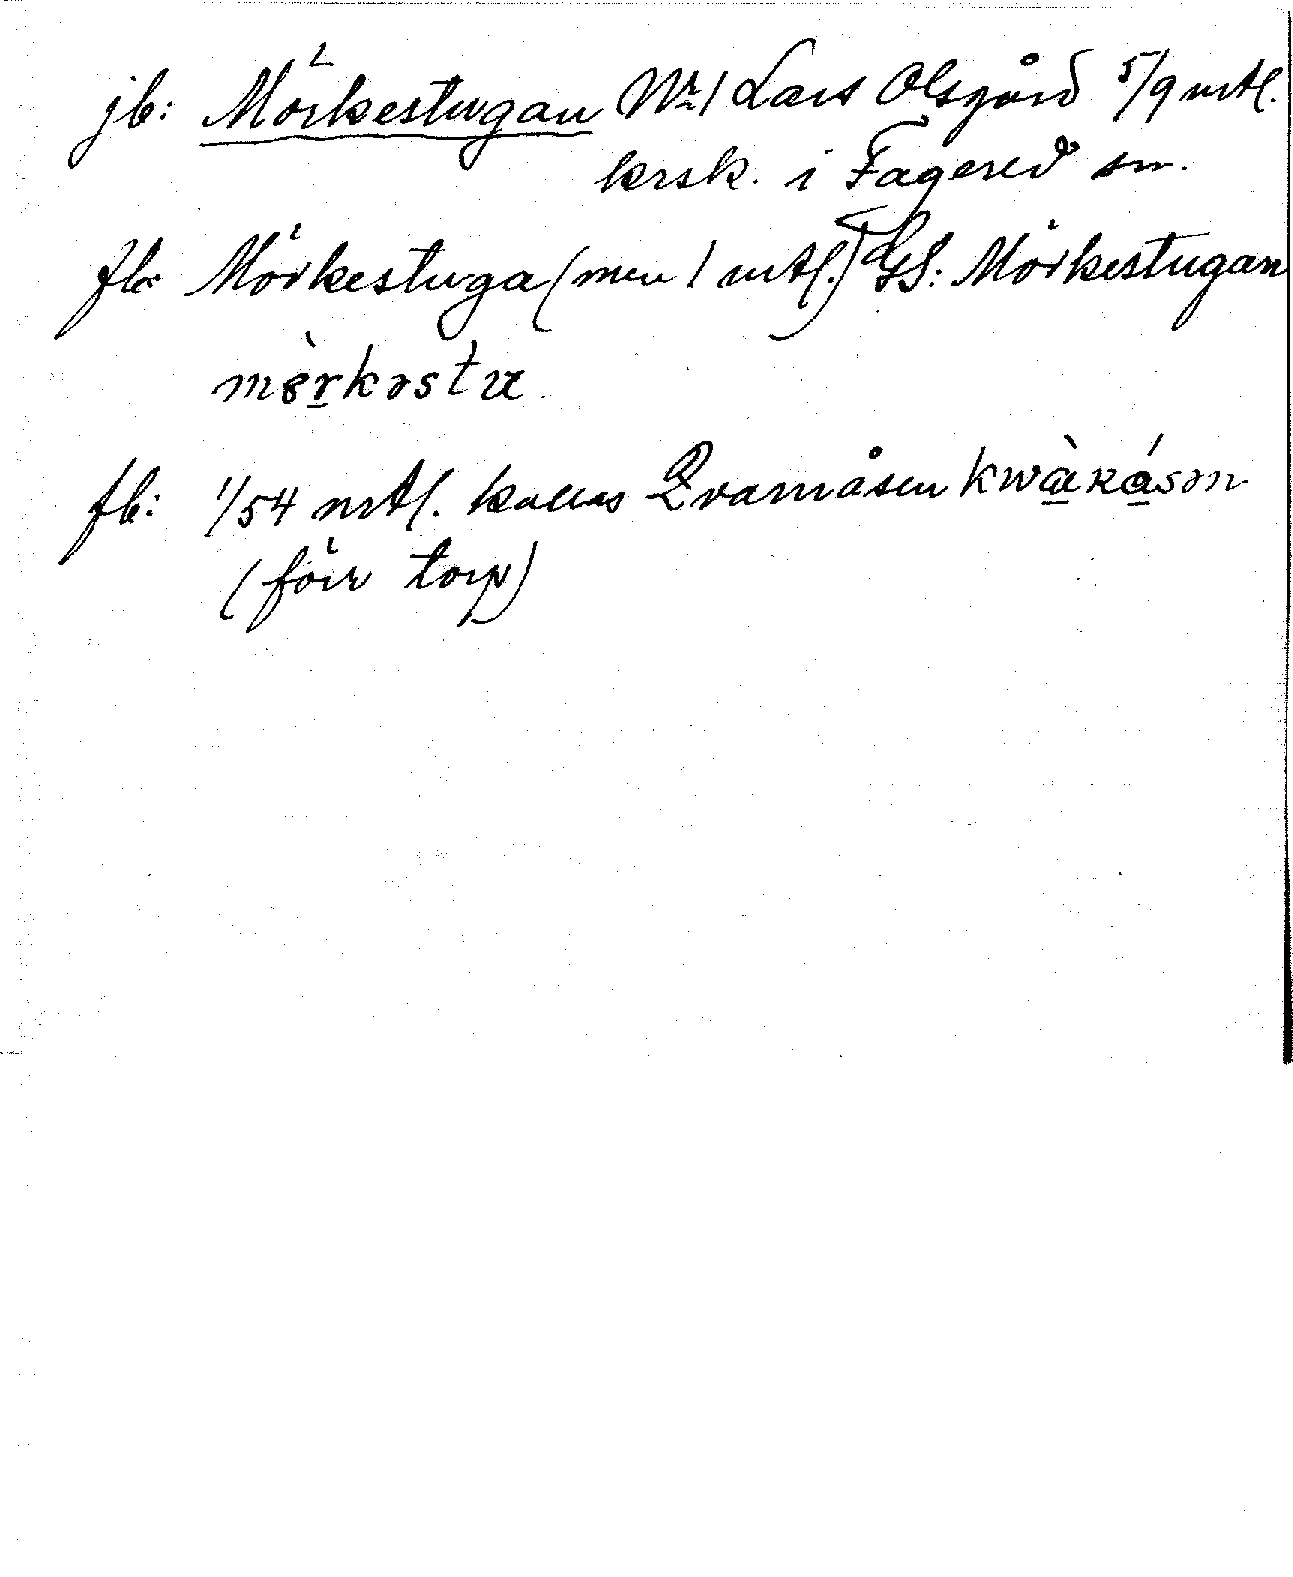 jb: Mörkestugan Nr 1 Lars Olsgård 5/9 mtl.
krsk. i Fagered sn.
fb: Mörkestuga (men 1 mtl.) GS: Mörkestugan
mèrkəstu
fb: 1/54 mtl. kallas Qvarnåsen
(förr torp)